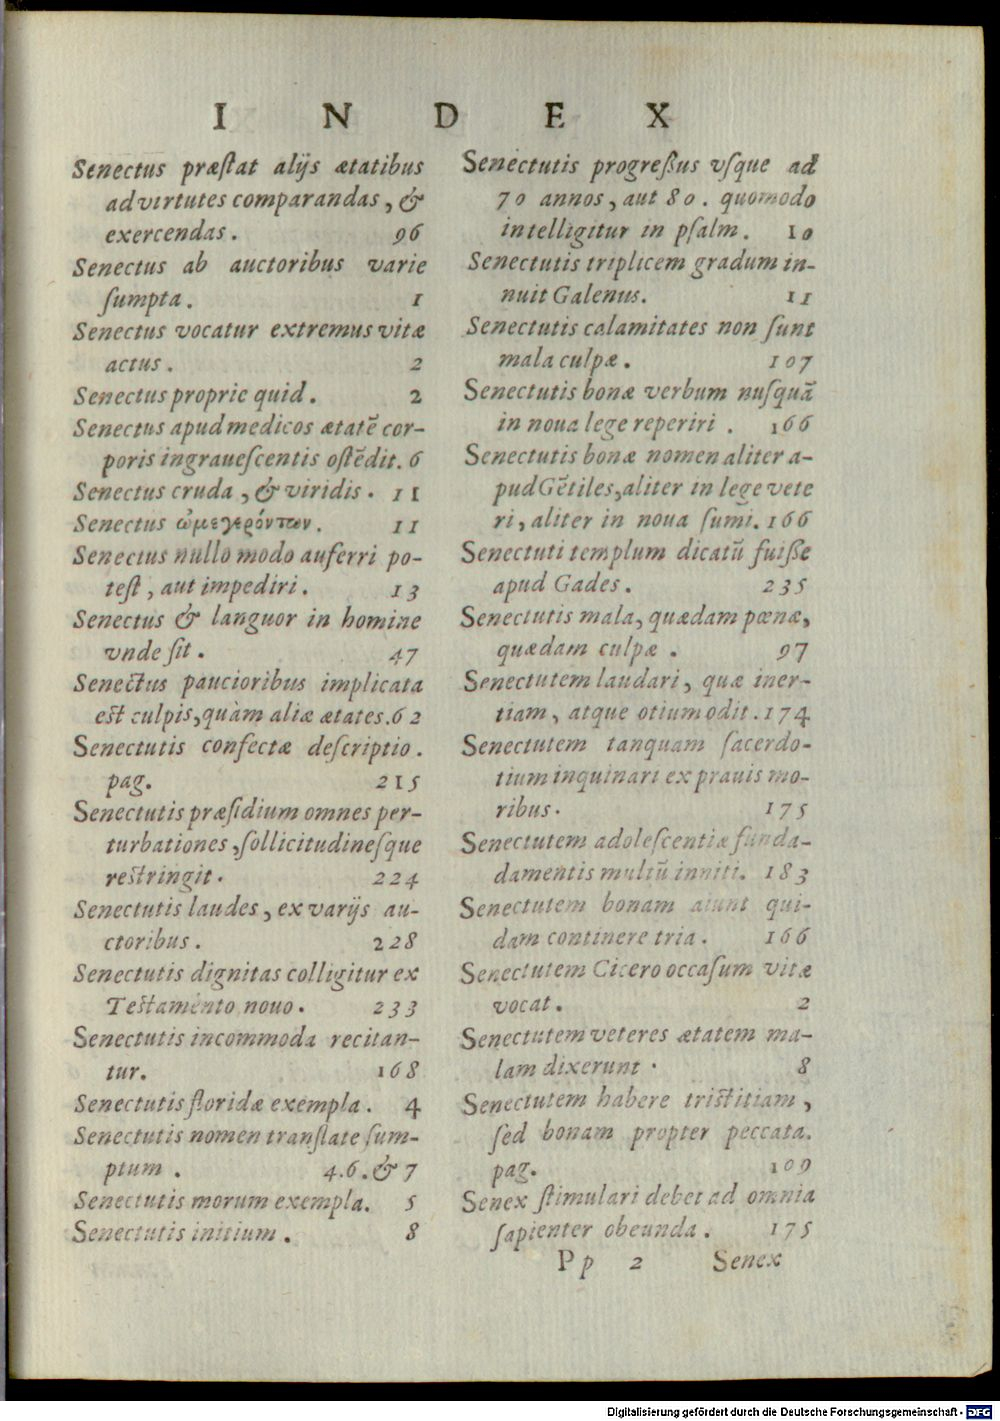 INDEX
Senectus præſtat alijs ætatibus
ad virtutes comparandas, &
exercendas. 96
Senectus ab auctoribus varie
ſumpta. 1
Senectus vocatur extremus vitæ
actus. 2
Senectus proprie quid. 2
Senectus apud medicos ætatẽ cor-
poris ingraueſcentis oſtẽdit. 6
Senectus cruda, & viridis. 11
Senectus ὠμεγερόντων. 11
Senectus nullo modo auferri po-
teſt, aut impediri. 13
Senectus & languor in homine
vnde ſit. 47
Senectus paucioribus implicata
eſt culpis, quàm aliæ ætates. 62
Senectutis confectæ deſcriptio.
pag. 215
Senectutis præſidium omnes per-
turbationes, ſollicitudineſque
reſtringit. 224
Senectutis laudes, ex varijs au-
ctoribus. 228
Senectutis dignitas colligitur ex
Teſtamento nouo. 233
Senectutis incommoda recitan-
tur. 168
Senectutis floridæ exempla. 4
Senectutis nomen tranſlate ſum-
ptum. 4. 6. & 7
Senectutis morum exempla. 5
Senectutis initium. 8
Senectutis progreſſus vſque ad
70 annos, aut 80. quomodo
intelligitur in pſalm. 10
Senectutis triplicem gradum in-
nuit Galenus. 11
Senectutis calamitates non ſunt
mala culpæ. 107
Senectutis bonæ verbum nuſquã
in noua lege reperiri. 166
Senectutis bonæ nomen aliter a-
pud Gẽtiles, aliter in lege vete
ri, aliter in noua ſumi. 166
Senectuti templum dicatũ fuiſſe
apud Gades. 235
Senectutis mala, quædam pœnæ,
quædam culpæ. 97
Senectutem laudari, quæ iner-
tiam, atque otium odit. 174
Senectutem tanquam ſacerdo-
tium inquinari ex prauis mo-
ribus. 175
Senectutem adoleſcentiæ funda-
damentis multũ inniti. 183
Senectutem bonam aiunt qui-
dam continere tria. 166
Senectutem Cicero occaſum vitæ
vocat. 2
Senectutem veteres ætatem ma-
lam dixerunt. 8
Senectutem habere triſtitiam,
ſed bonam propter peccata.
pag. 109
Senex ſtimulari debet ad omnia
ſapienter obeunda. 175
Pp 2 Senex
Digitalisierung gefördert durch die Deutsche Forschungsgemeinschaft - DFG